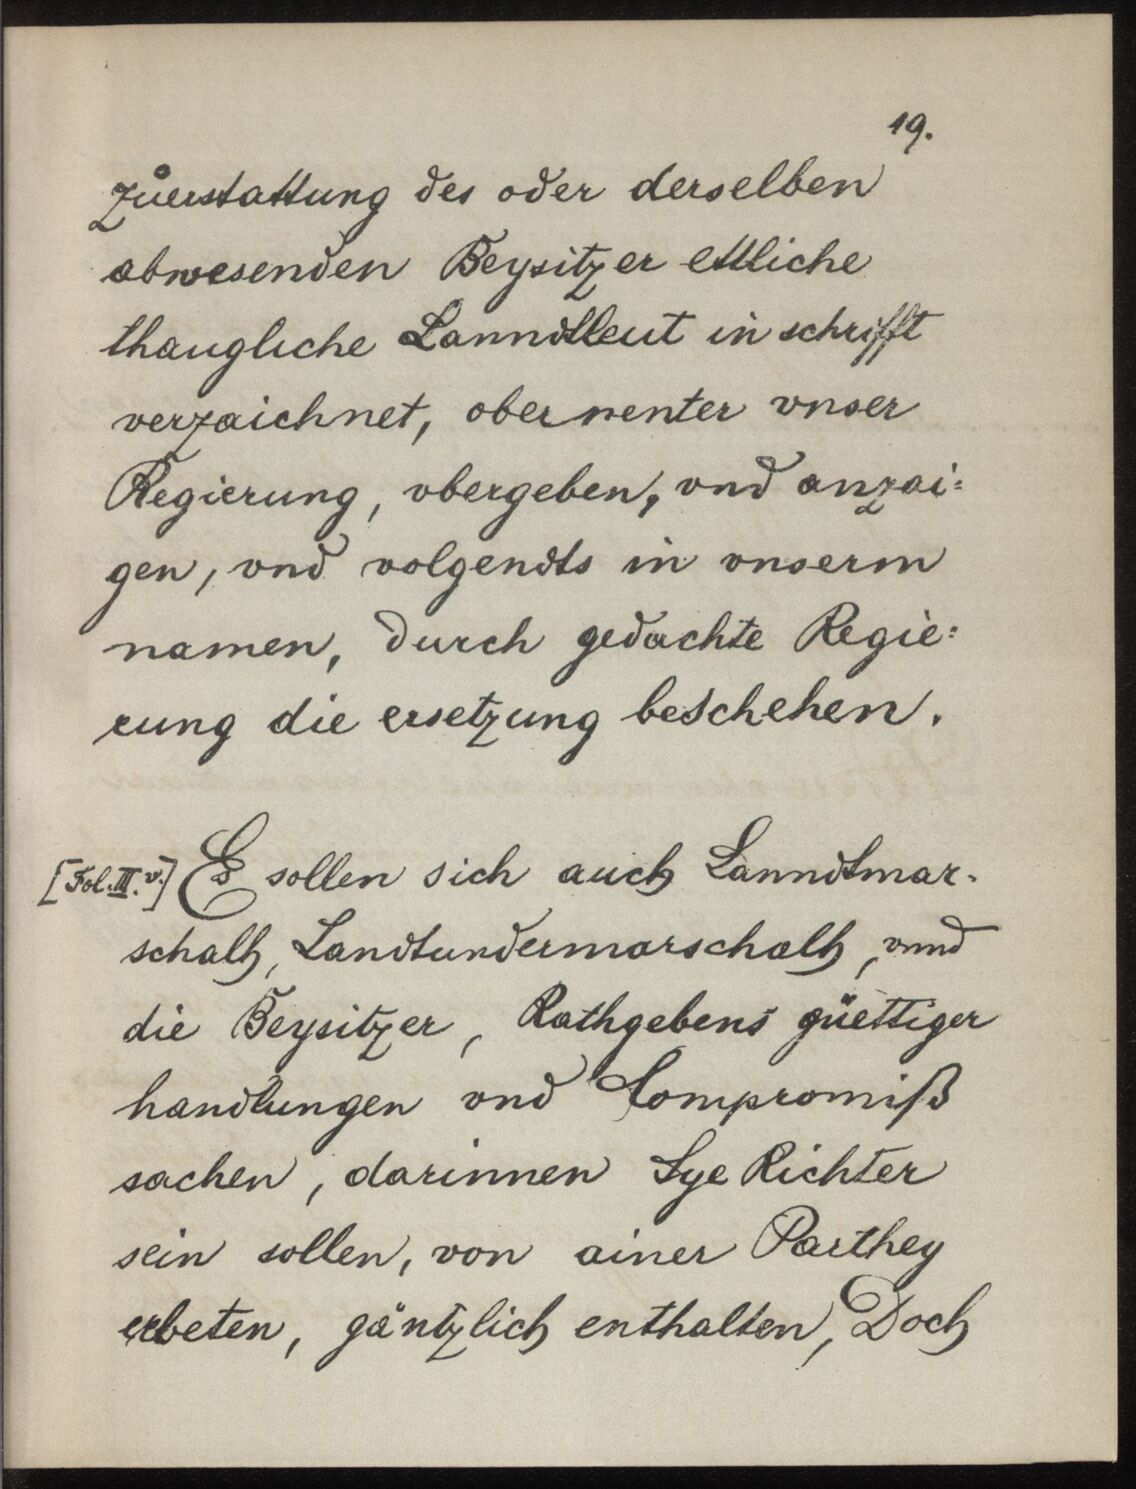 19.
zůerstattung des oder derselben
abwesenden Beysitzer ettliche
thaugliche Lanndtleut in schrifft
verzaichnet, obernenter vnser
Regierung, vbergeben, vnd anzai=
gen, vnd volgendts in vnserm
namen, durch gedachte Regie=
rung die ersetzung beschehen.
[Fol. III. v.] Es sollen sich auch Lanndtmar-
schalh, Landtundermarschalh, vnnd
die Beysitzer, Rathgebens güettiger
handlungen vnd Compromiß
sachen, darinnen Sye Richter
sein sollen, von ainer Parthey
erbeten, gäntzlich enthalten, Doch